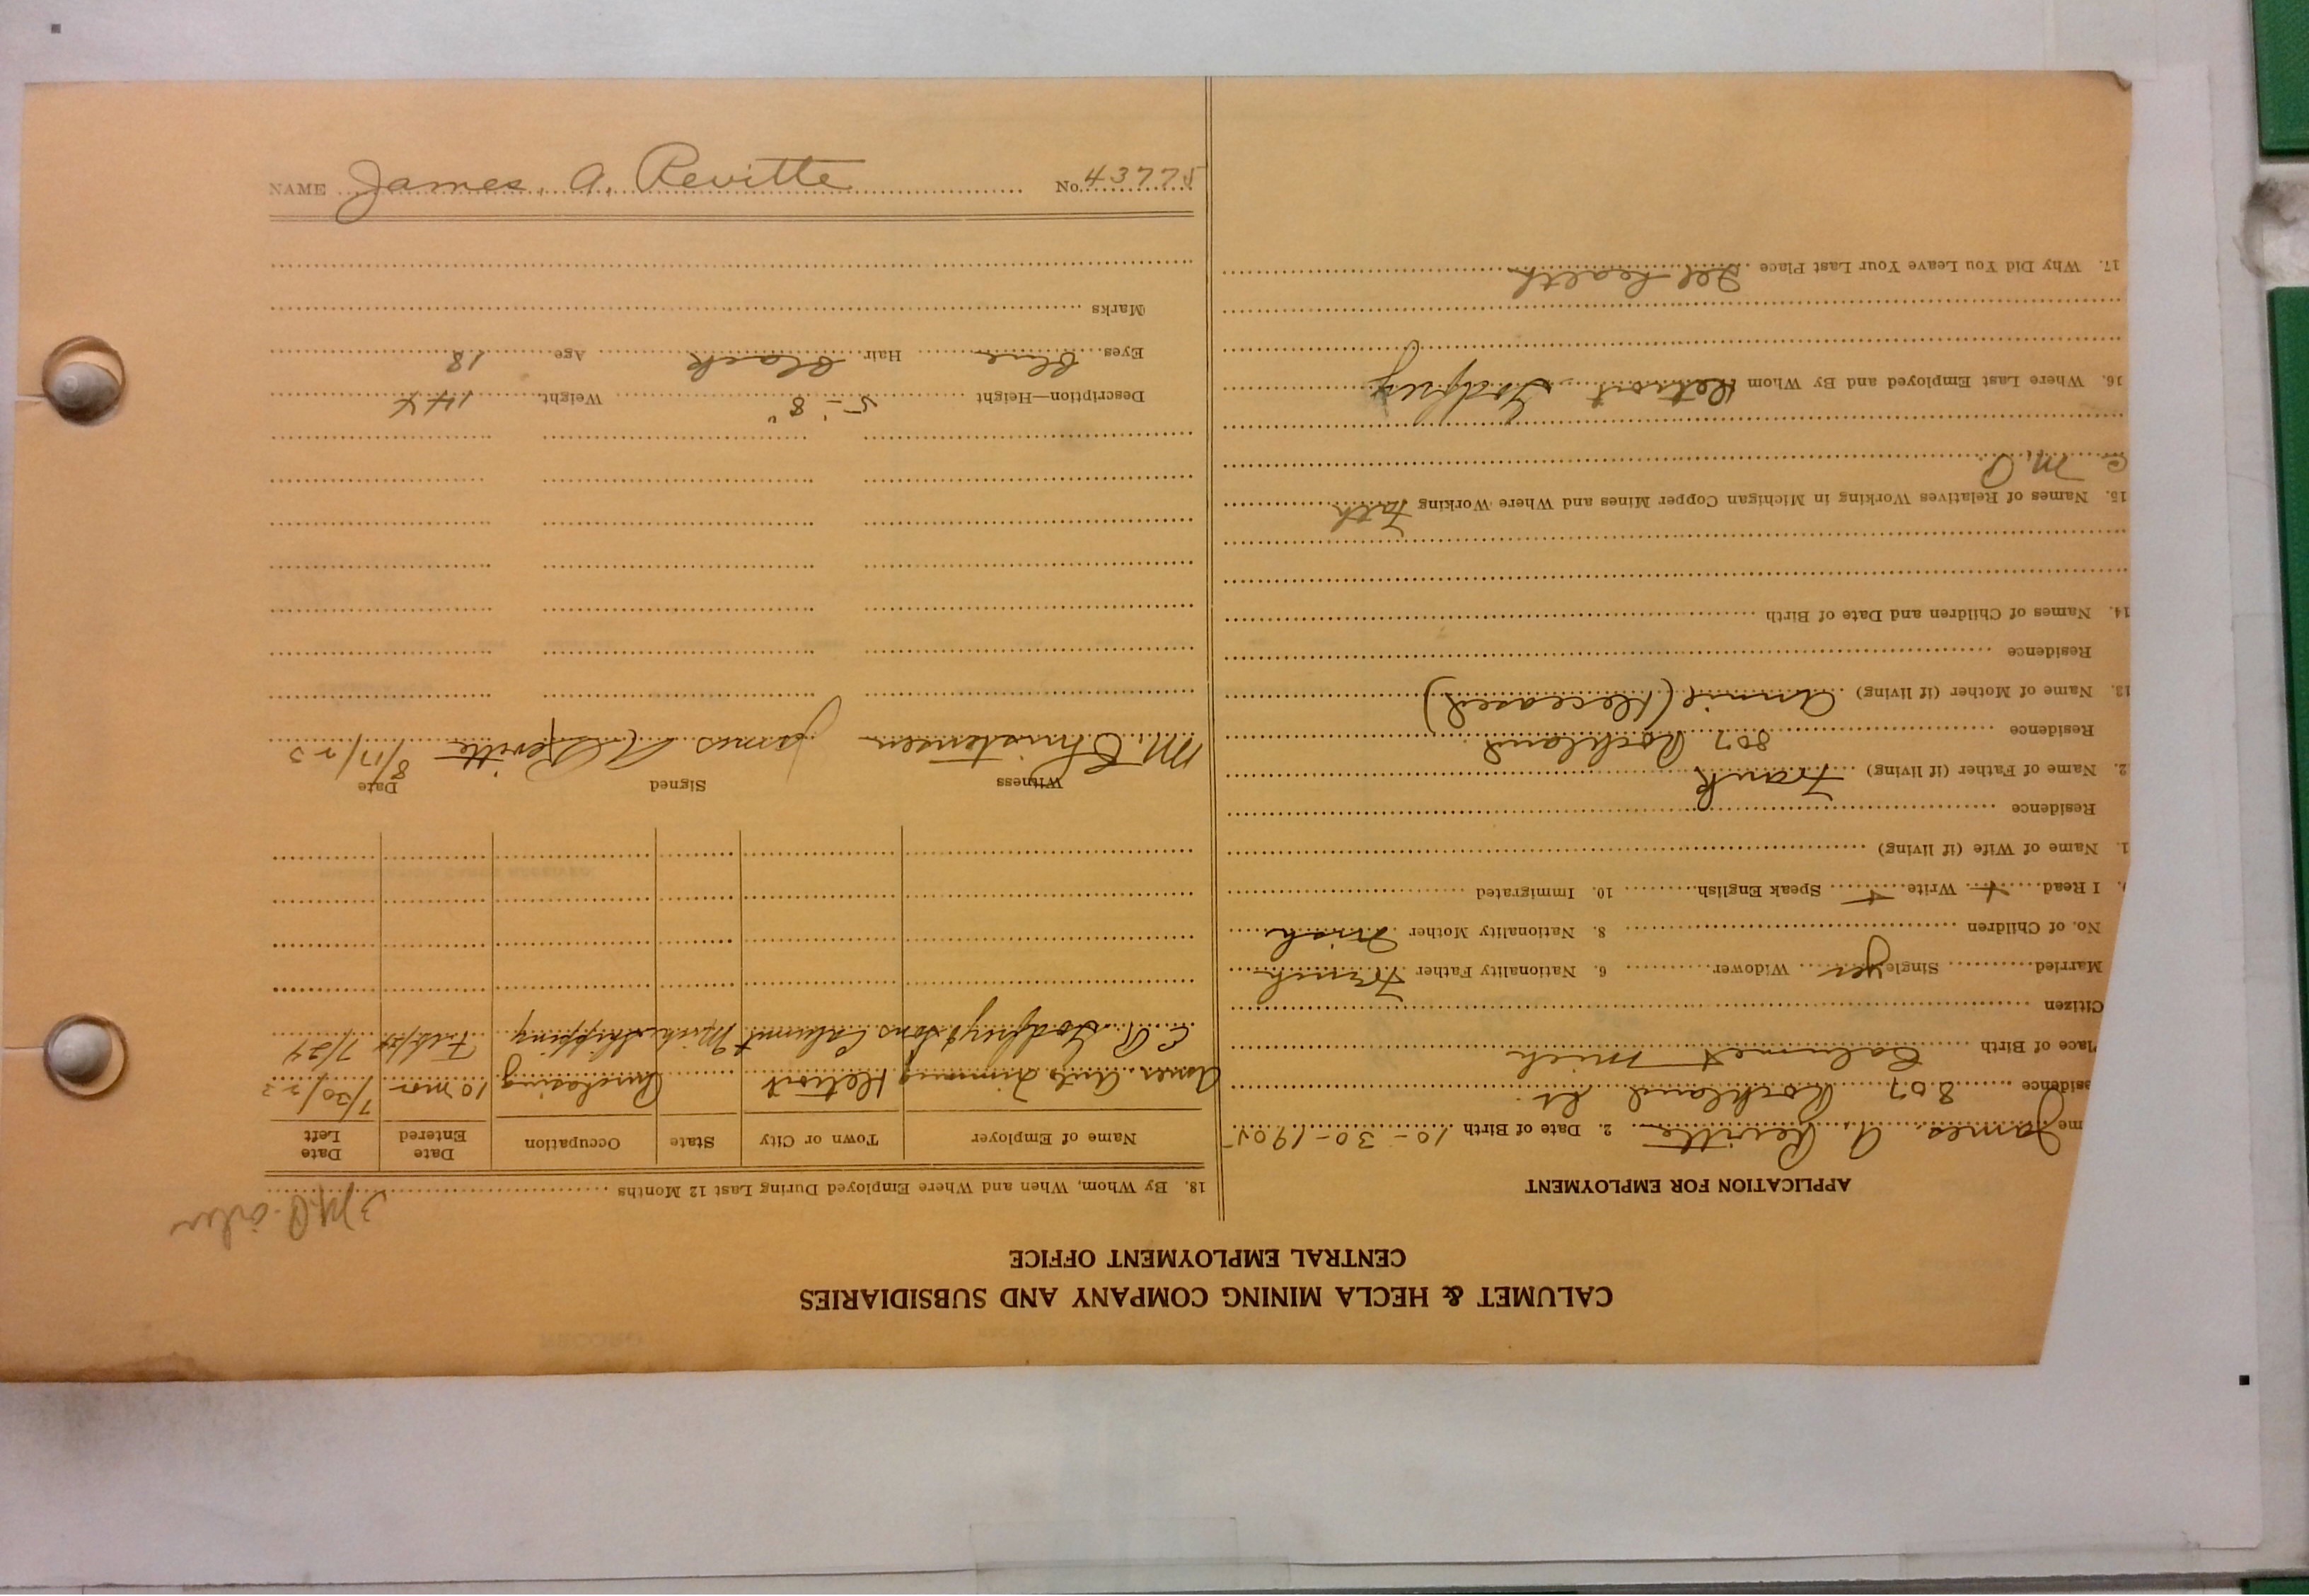 NAME James. A. Revitte No. 43775
CALUMET & HECLA MINING COMPANY AND SUBSIDIARIES
CENTRAL EMPLOYMENT OFFICE
APPLICATION FOR EMPLOYMENT
me James A. Revitte 2. Date of Birth 10-30-1905
sidence 807 Rockland St.
Place of Birth Calumet Mich
Citizen
Married Single yes Widower 6. Nationality Father French
No. of Children 8. Nationality Mother Irish
9. I Read + Write + Speak English 10. Immigrated
1. Name of Wife (if living)
Residence
2. Name of Father (if living) Frank
Residence 807 Rockland
13. Name of Mother (if living) Annie (Deceased)
Residence
14. Names of Children and Date of Birth
15. Names of Relatives Working in Michigan Copper Mines and Where Working Fath
16. Where Last Employed and By Whom Detroit Godfrey
17. Why Did You Leave Your Last Place Ill health
18. By Whom, When and Where Employed During Last 12 Months
Name of Employer Town or City State Occupation Date Entered Date Left
Amer. Auto Trimming Detroit Purchasing 10 mos 7/30/23
E R Godfrey & Sons Calumet Mich Shipping 7/24
Witness Signed Date
M. Christensen James A. Revitte 8/17/23
Description—Height 5'-8" Weight 144
Eyes Blue Hair Black Age 18
Marks